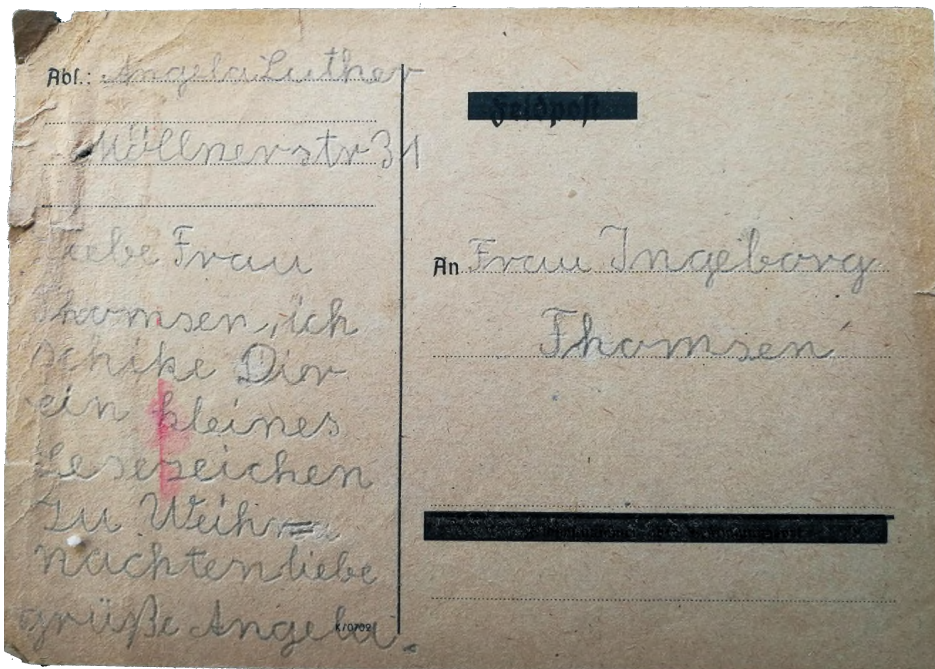 Abs.: Angela Luther
Möllnerstr 31
Liebe Frau
Thomsen, ich
schike Dir
ein kleines
Lesezeichen
Zu Weihn=
nachten liebe
grüße Angela.
K/0702
Feldpost
An Frau Ingeborg
Thomsen